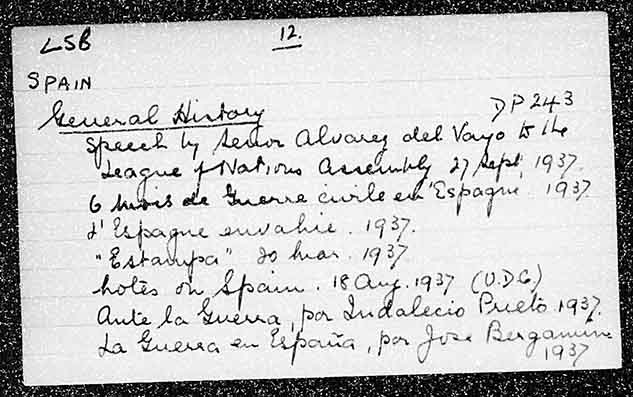 LSB 12.
SPAIN
General History DP 243
Speech by Senor Alvarez del Vayo to the
League of Nations Assembly 27 Sept 1937.
6 mois de Guerre civile en Espagne 1937.
L'Espagne envahie. 1937.
"Estampa" 20 Mar. 1937
Notes on Spain. 18 Aug. 1937 (U.D.C)
Ante la Guerra, por Indalecio Prieto 1937.
La Guerra en España, por Jose Bergamin
1937